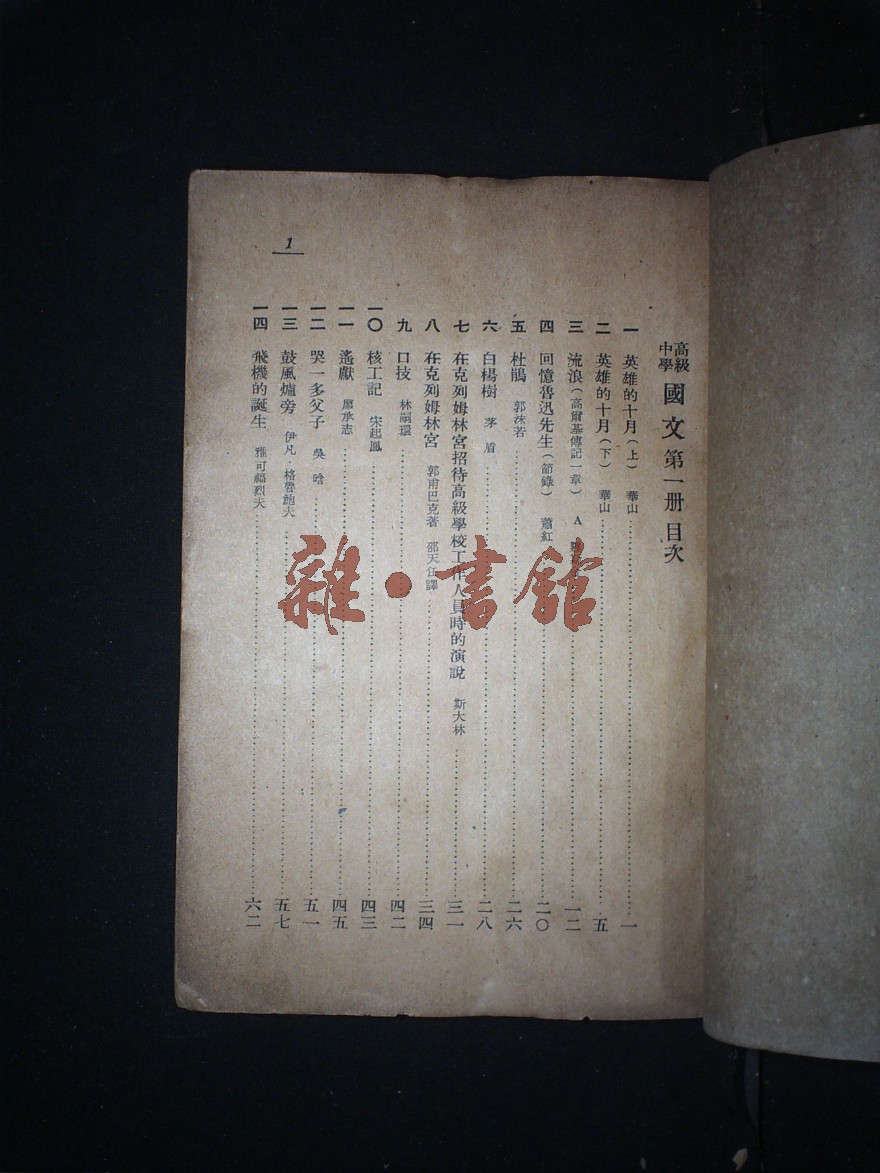 高級中學 國文 第一册 目次
一 英雄的十月(上) 華山 一
二 英雄的十月(下) 華山 五
三 流浪(高爾基傳記一章) A 一二
四 回憶魯迅先生(節錄) 蕭紅 二〇
五 杜鵑 郭沫若 二六
六 白楊樹 茅盾 二八
七 在克列姆林宮招待高級學校工作人員時的演說 斯大林 三一
八 在克列姆林宮 郭甫巴克著 邵天任譯 三四
九 口技 林嗣環 四二
一〇 核工記 宋起鳳 四三
一一 遙獻 廖承志 四五
一二 哭一多父子 吳晗 五一
一三 鼓風爐旁 伊凡·格魯鮑夫 五七
一四 飛機的誕生 雅可福烈夫 六二
1
雜·書舘